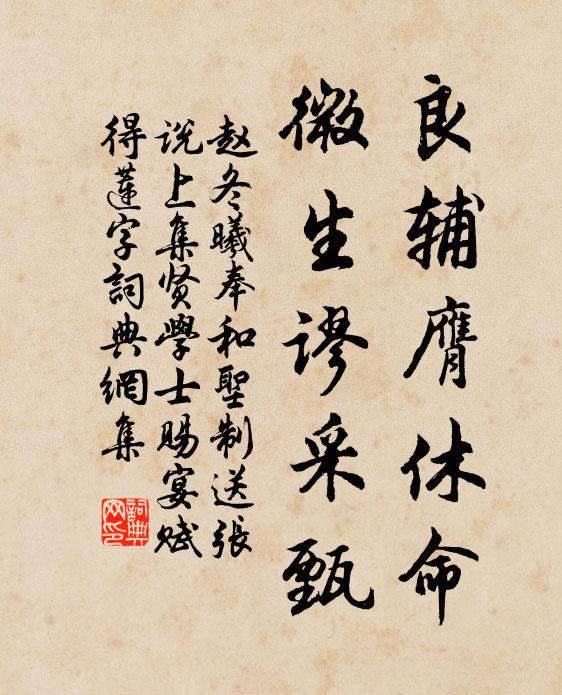 良辅膺休命
微生谬采甄
赵冬曦奉和聖制送張
说上集贤學士赐宴赋
得蓮字詞典網集
詞典
网印